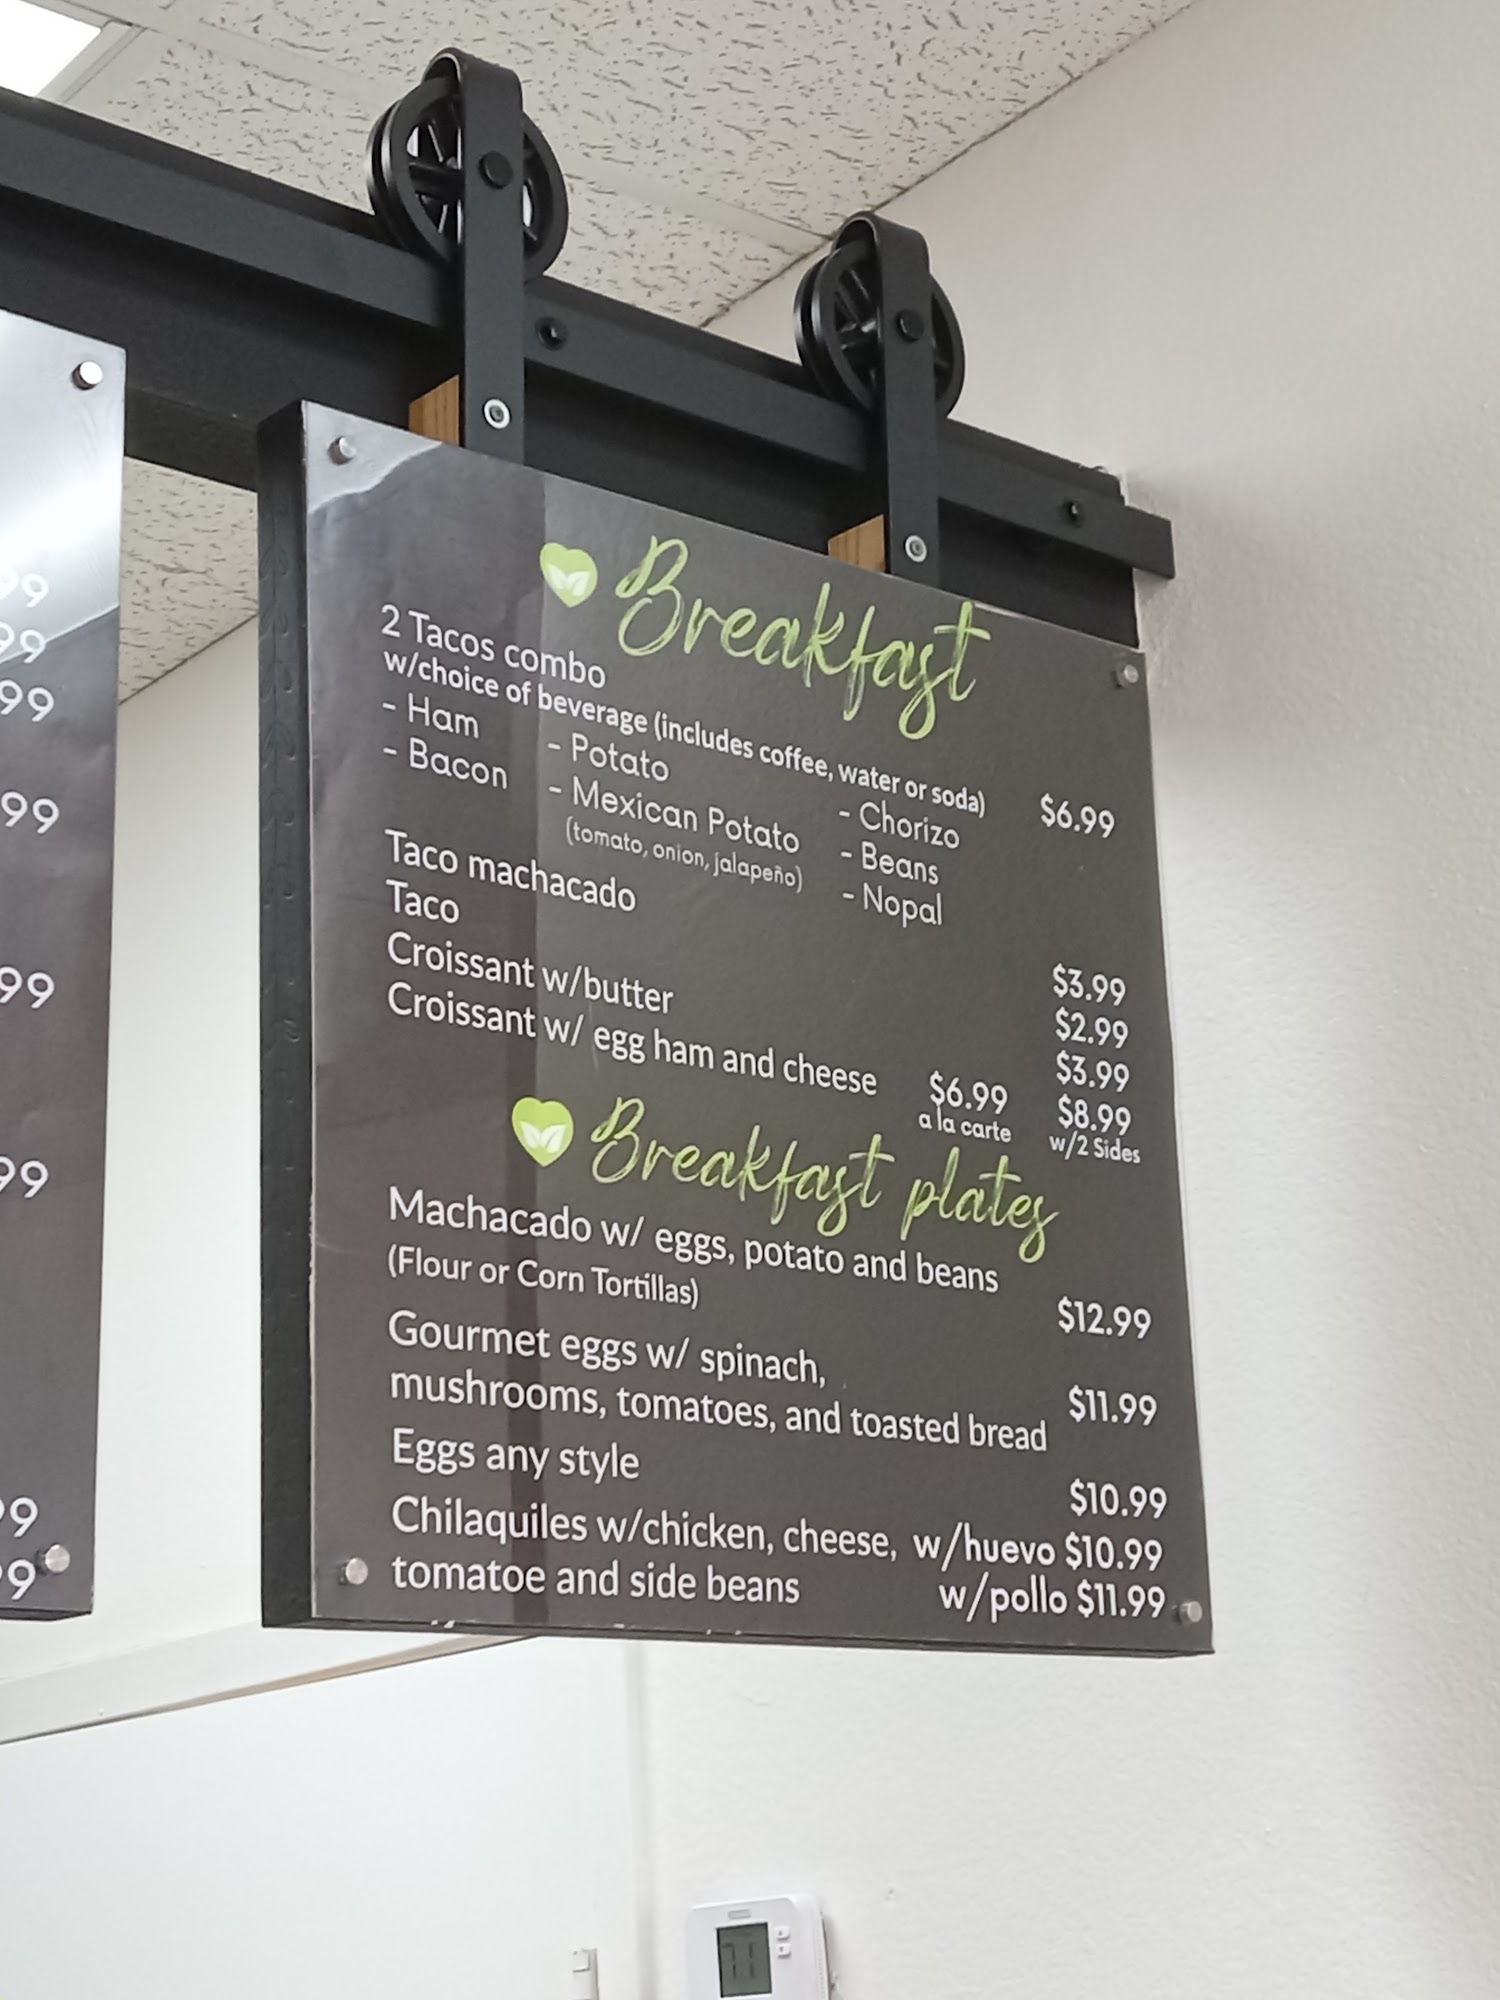 Breakfast
2 Tacos combo
w/choice of beverage (includes coffee, water or soda) $6.99
- Ham - Potato - Chorizo
- Bacon - Mexican Potato - Beans
(tomato, onion, jalapeño) - Nopal
Taco machacado $3.99
Taco $2.99
Croissant w/butter $3.99
Croissant w/ egg ham and cheese $6.99 $8.99
a la carte w/2 Sides
Breakfast plates
Machacado w/ eggs, potato and beans
(Flour or Corn Tortillas) $12.99
Gourmet eggs w/ spinach,
mushrooms, tomatoes, and toasted bread $11.99
Eggs any style $10.99
Chilaquiles w/chicken, cheese, w/huevo $10.99
tomatoe and side beans w/pollo $11.99
99
99
99
99
99
99
99
99
71